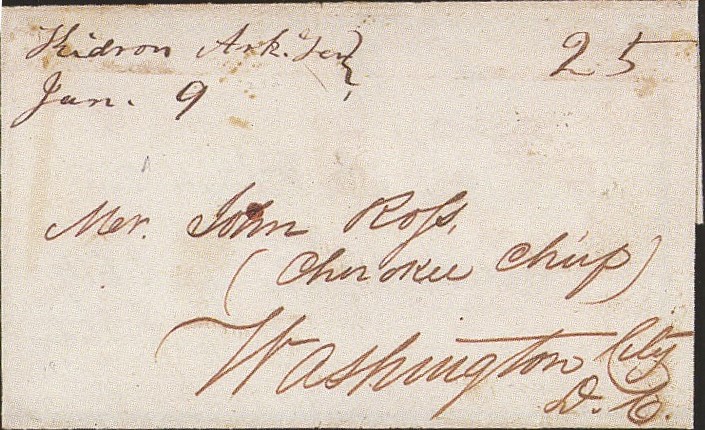 Kidron Ark. Ter. 25
Jan. 9
Mr. John Ross,
(Cherokee Chief)
Washington City
D. C.